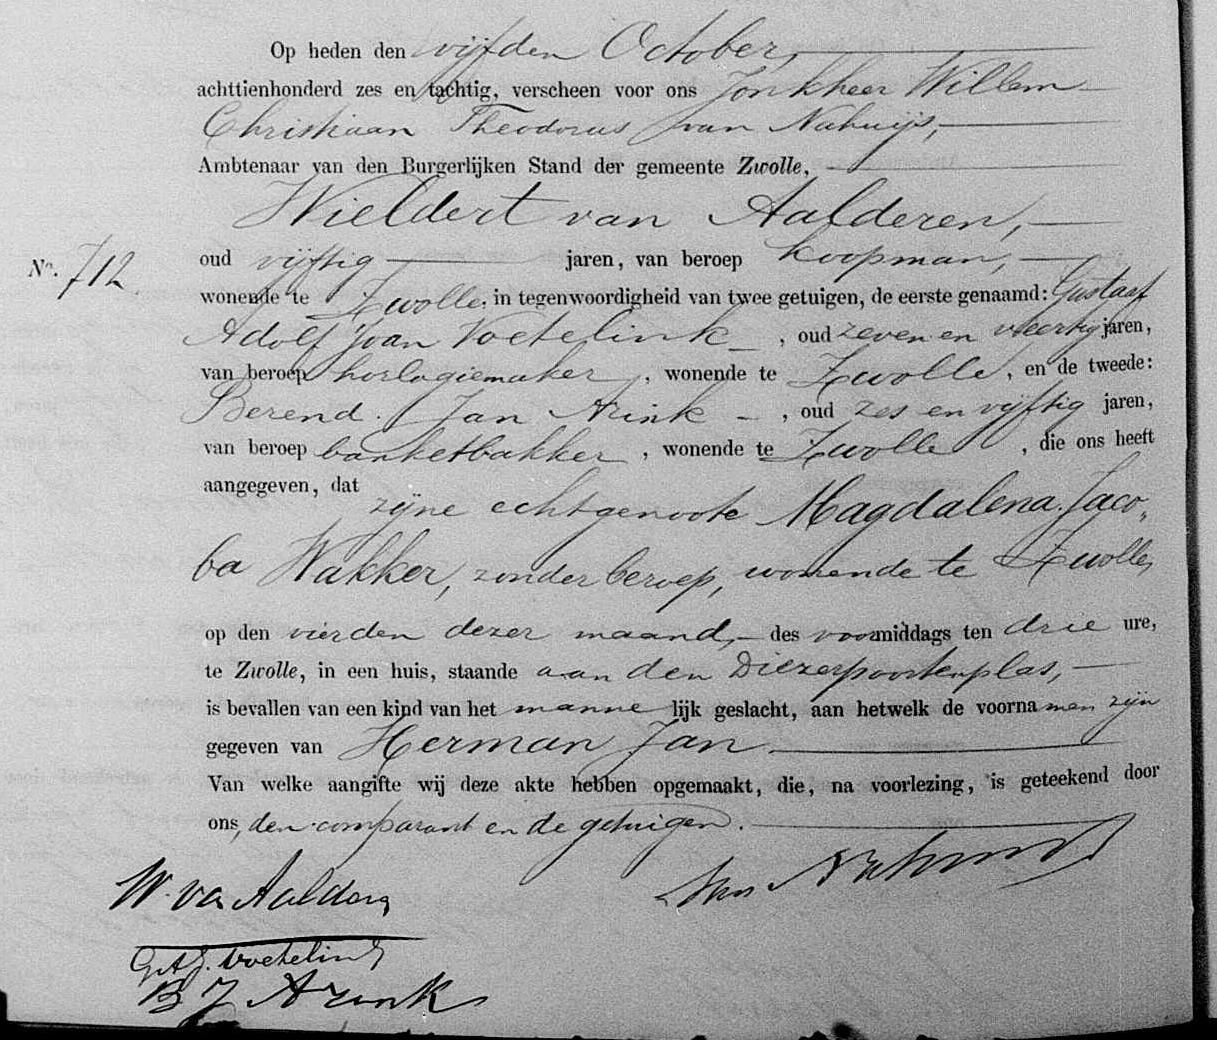 Op heden den vijfden October,
achttienhonderd zes en tachtig, verscheen voor ons Jonkheer Willem
Christiaan Theodorus van Nahuijs,
Ambtenaar van den Burgerlijken Stand der gemeente Zwolle,
Wieldert van Aalderen,
oud vijftig jaren, van beroep koopman,
No. 712
wonende te Zwolle, in tegenwoordigheid van twee getuigen, de eerste genaamd: Gustaaf
Adolf Joan Voetelink, oud zeven en veertig jaren,
van beroep horlogiemaker, wonende te Zwolle, en de tweede:
Berend Jan Arink, oud zes en vijftig jaren,
van beroep banketbakker, wonende te Zwolle, die ons heeft
aangegeven, dat
zijne echtgenoote Magdalena Jaco„
ba Wakker, zonder beroep, wonende te Zwolle,
op den vierden dezer maand, des voormiddags ten drie ure,
te Zwolle, in een huis, staande aan den Diezerpoortenplas,
is bevallen van een kind van het mannelijk geslacht, aan hetwelk de voornamen zijn
gegeven van Herman Jan.
Van welke aangifte wij deze akte hebben opgemaakt, die, na voorlezing, is geteekend door
ons, den comparant en de getuigen.
W. van Aalderen
G. A. J. Voetelink
B J Arink